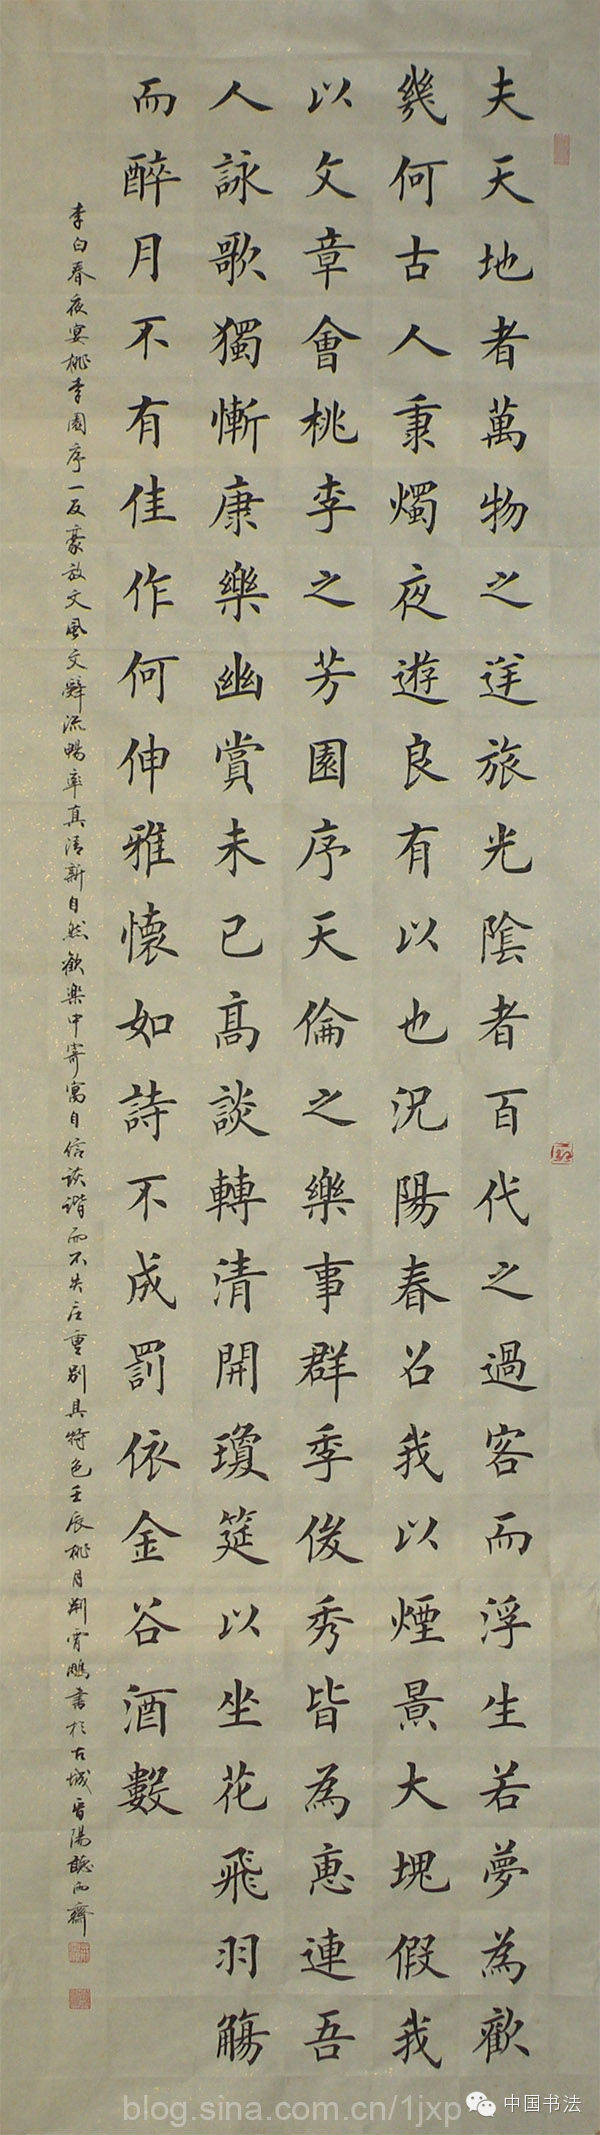 夫天地者萬物之逆旅光陰者百代之過客而浮生若夢為歡
幾何古人秉燭夜遊良有以也況陽春召我以煙景大塊假我
以文章會桃李之芳園序天倫之樂事群季俊秀皆為惠連吾
人詠歌獨慚康樂幽賞未已高談轉清開瓊筵以坐花飛羽觴
而醉月不有佳作何伸雅懷如詩不成罰依金谷酒數
李白春夜宴桃李園序一反豪放文風文辭流暢率真清新自然歡樂中寄寓自信詼諧而不失庄重別具特色壬辰桃月荆霄鵬書於古城晉陽聽雨齋
blog.sina.com.cn/1jxp
中国书法